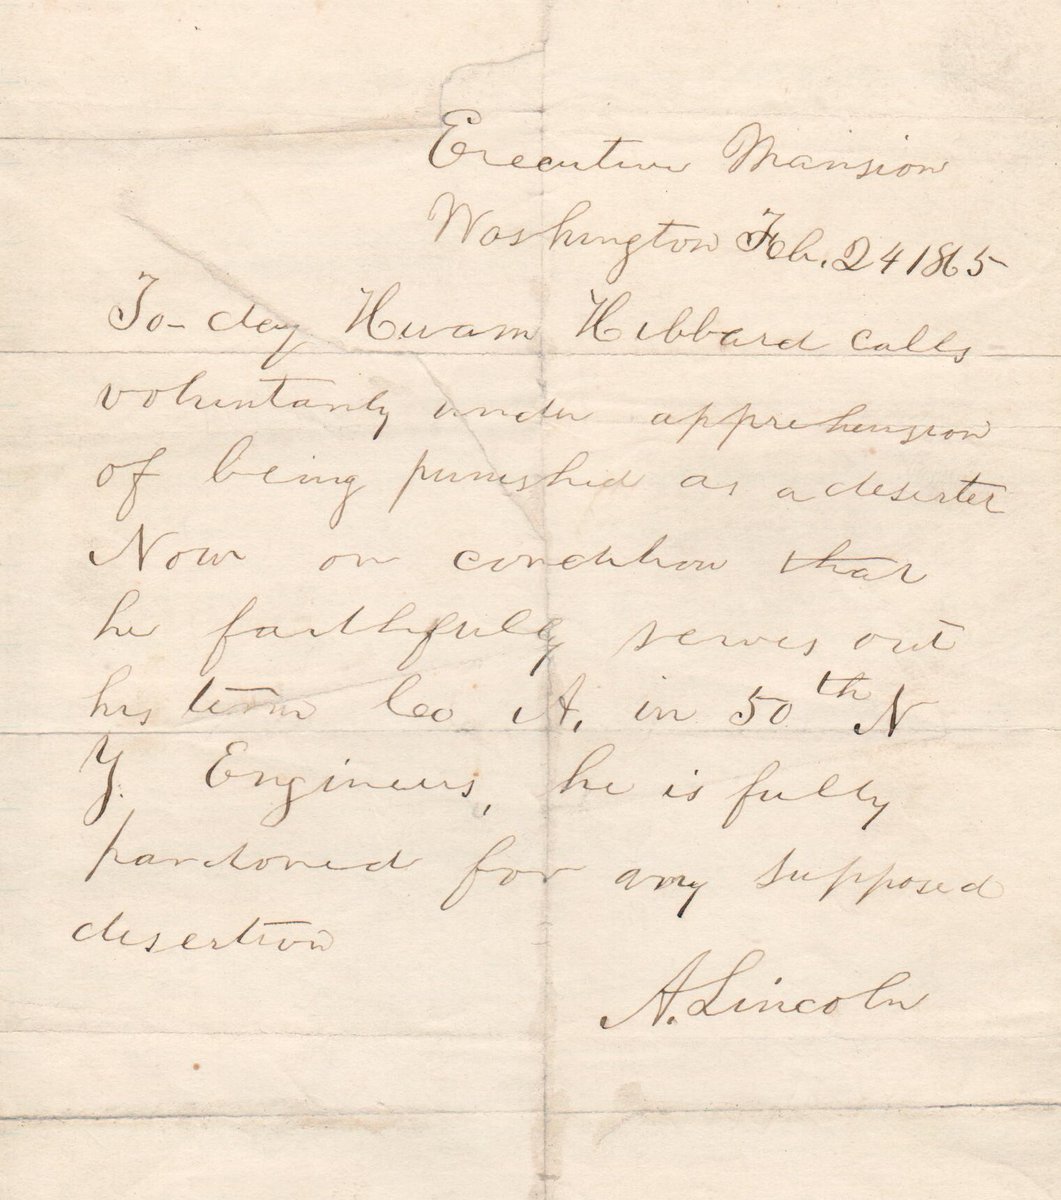 Executive Mansion
Washington Feb. 24 1865
To-day Hiram Hibbard calls
voluntarily under apprehension
of being punished as a deserter
Now on condition that
he faithfully serves out
his term Co A. in 50th N
Y. Engineers, he is fully
pardoned for any supposed
desertion
A. Lincoln